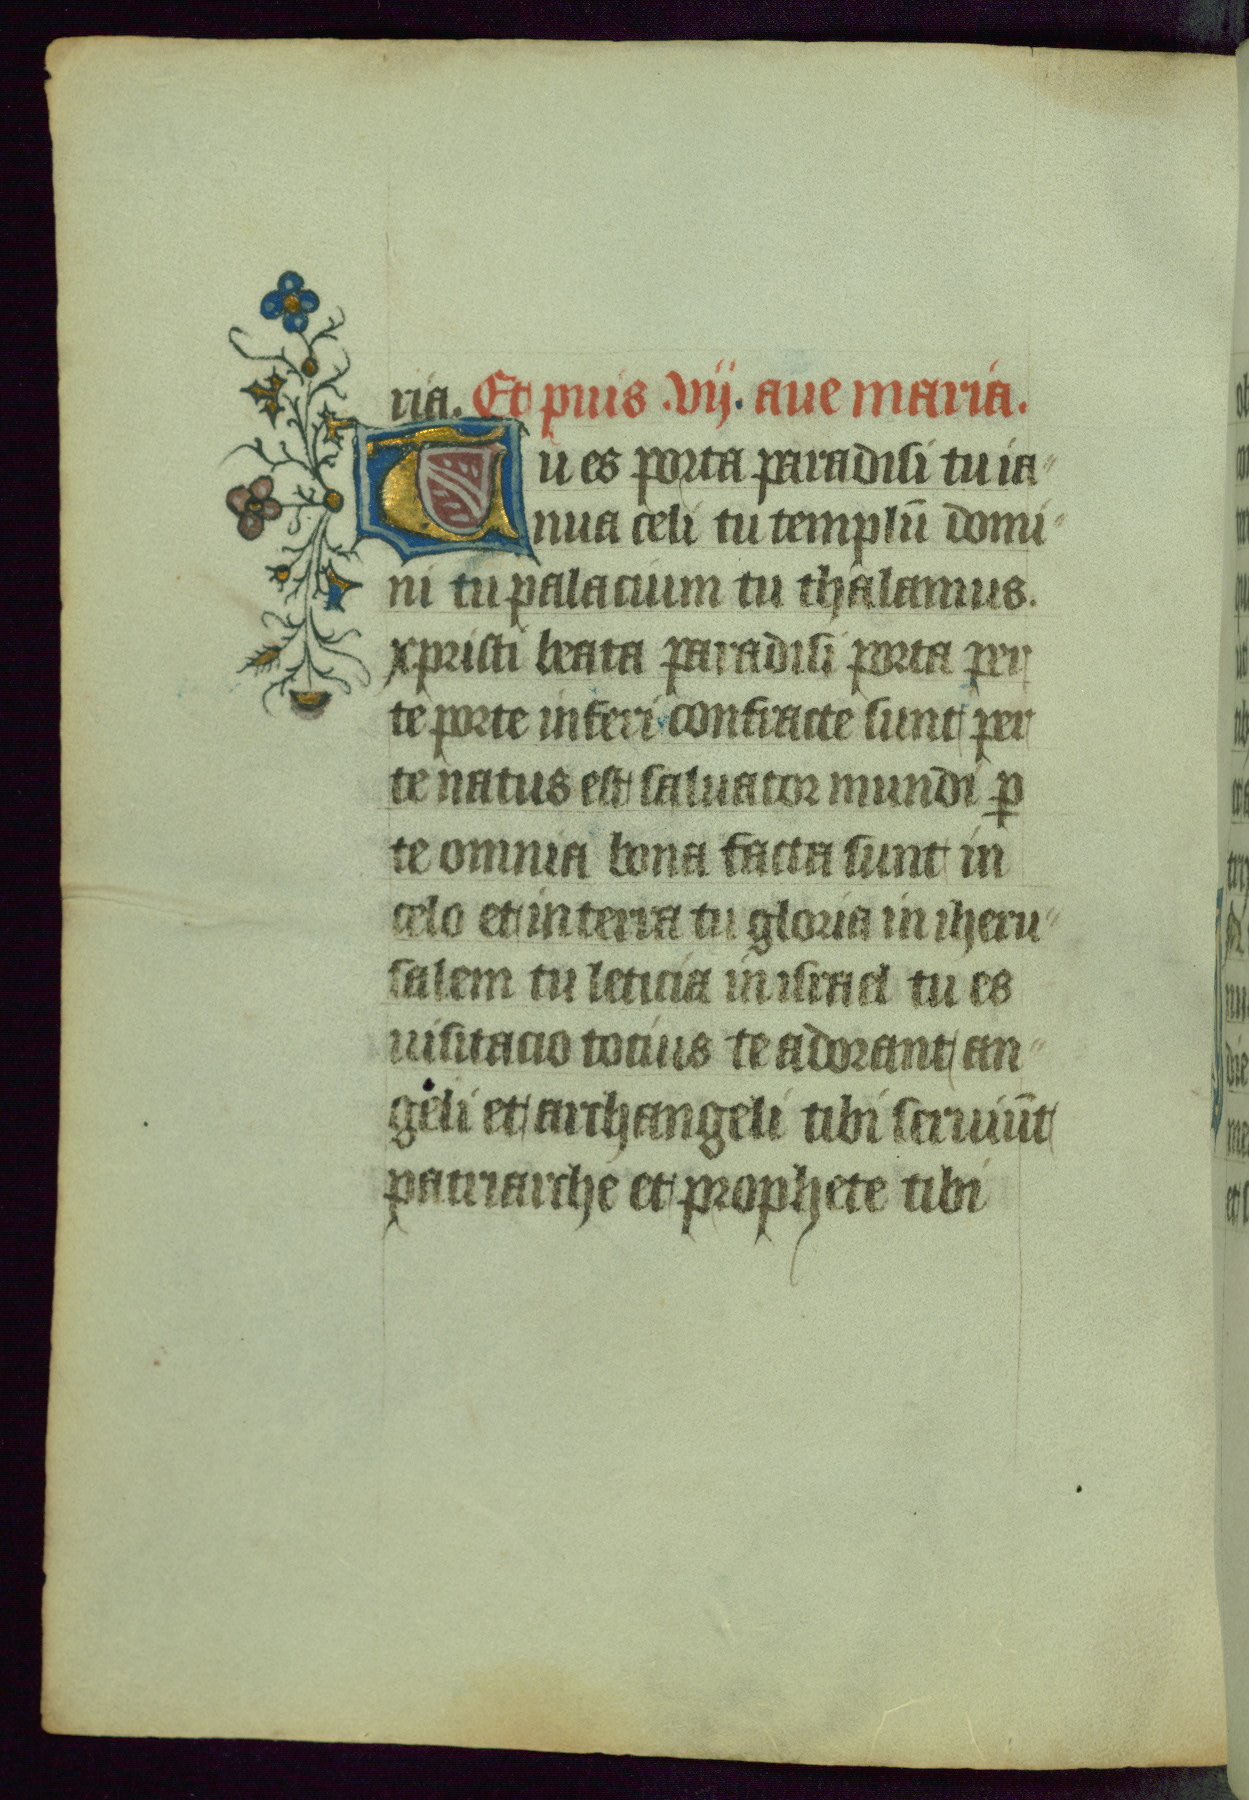 ria. Et puis .vij. aue maria.
Tu es porta paradisi tu ia
nua celi tu templū domi
ni tu palacium tu thalamus.
xpristi beata paradisi porta per
te porte inferi confracte sunt per
te natus est saluator mundi ꝑ
te omnia bona facta sunt in
celo et in terra tu gloria in iheru
salem tu leticia in israel tu es
uisitacio tocius te adorant an
geli et archangeli tibi seruiūt
patriarche et prophete tibi